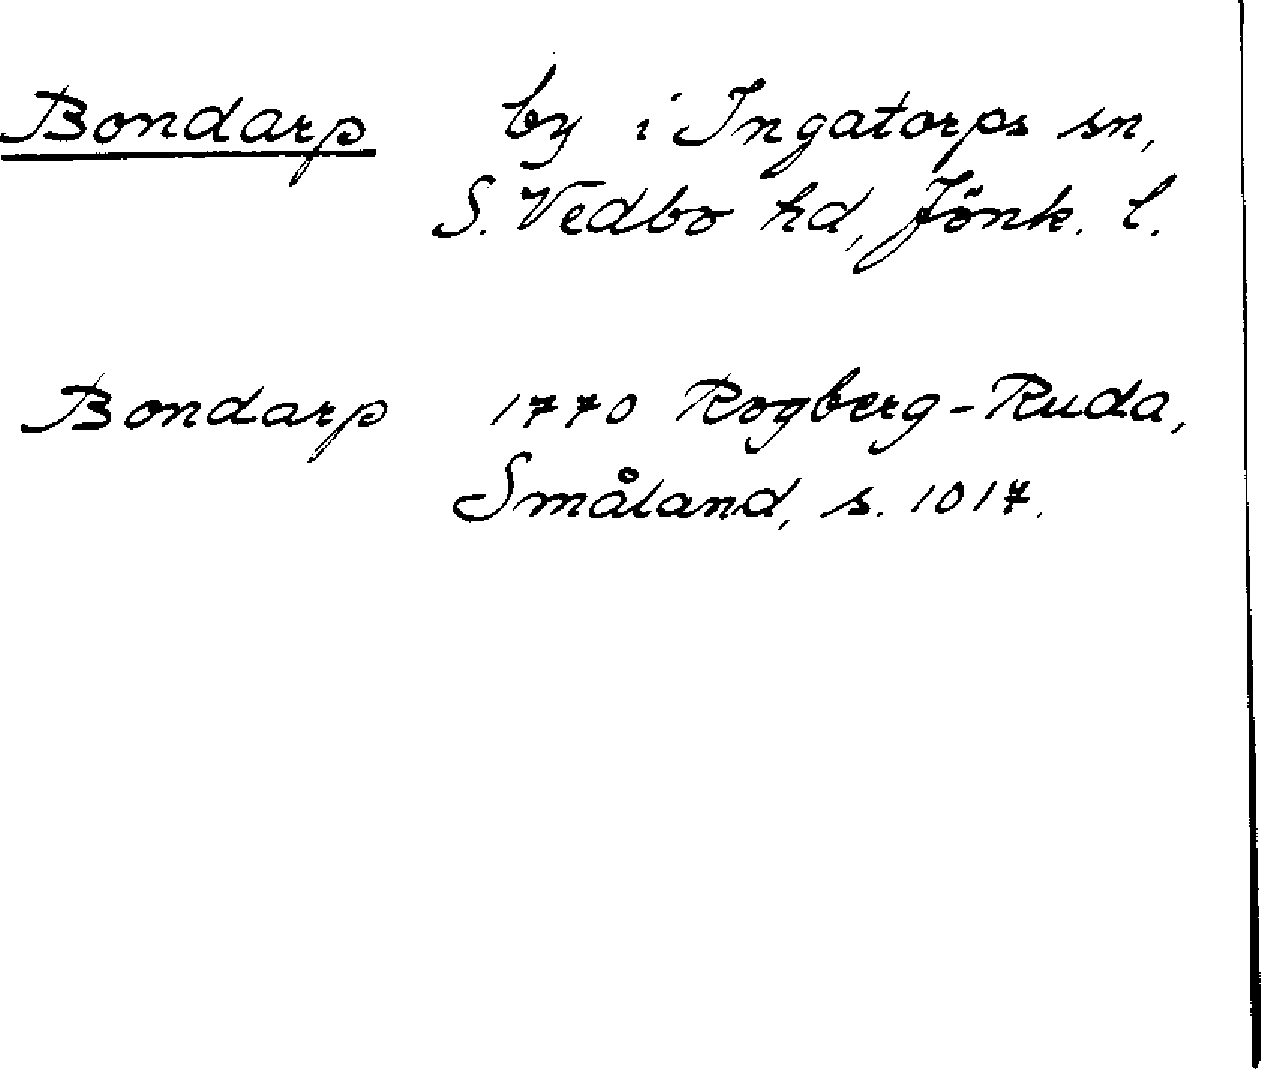 Bondarp by i Ingatorps sn,
S. Vedbo hd, Jönk. l.
Bondarp 1770 Rogberg-Ruda,
Småland, s. 1017.